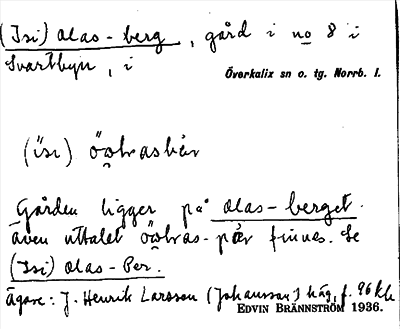 (Isi) Olas-berg, gård i no 8 i
Svartbyn, i
Överkalix sn o. tg. Norrb. l.
Gården ligger på Olas-berget.
Även uttalet finnes. Se
(Isi) Olas-Per.
Ägare: J. Henrik Larsson (Johansson) häg, f. 96 kh
EDVIN BRÄNNSTRÖM 1936.